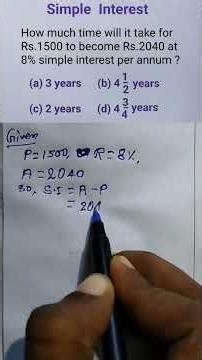 Simple Interest
How much time will it take for
Rs.1500 to become Rs.2040 at
8% simple interest per annum ?
(a) 3 years (b) 4 1/2 years
(c) 2 years (d) 4 3/4 years
Given
P=1500, R=8%,
A=2040
S.I = A-P
= 204